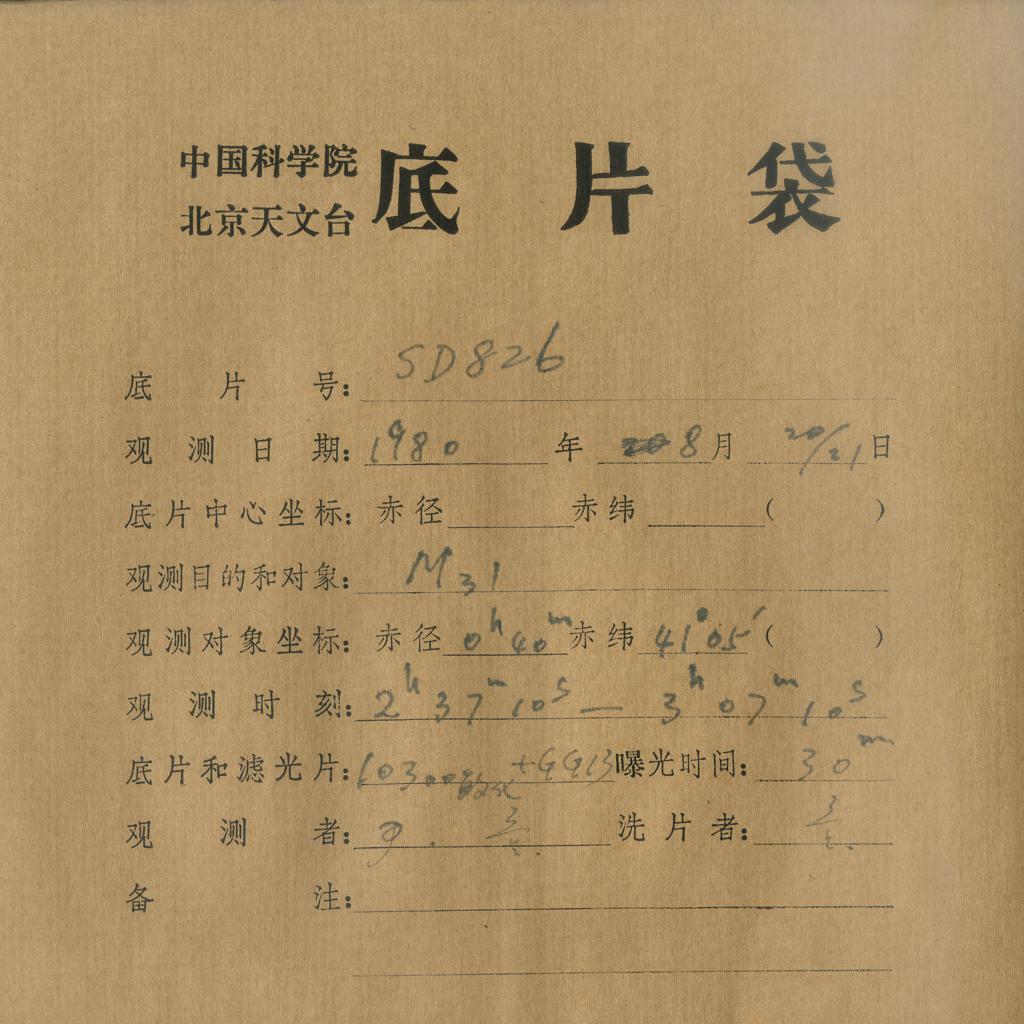 中国科学院
北京天文台
底片袋
底片号: SD826
观测日期: 1980年 8月 20/21日
底片中心坐标: 赤径 赤纬 ( )
观测目的和对象: M31
观测对象坐标: 赤径 0h 40m 赤纬 41°05′ ( )
观测时刻: 2h 37m 10s — 3h 07m 10s
底片和滤光片: +GG13 曝光时间: 30m
观测者: 洗片者:
备注: